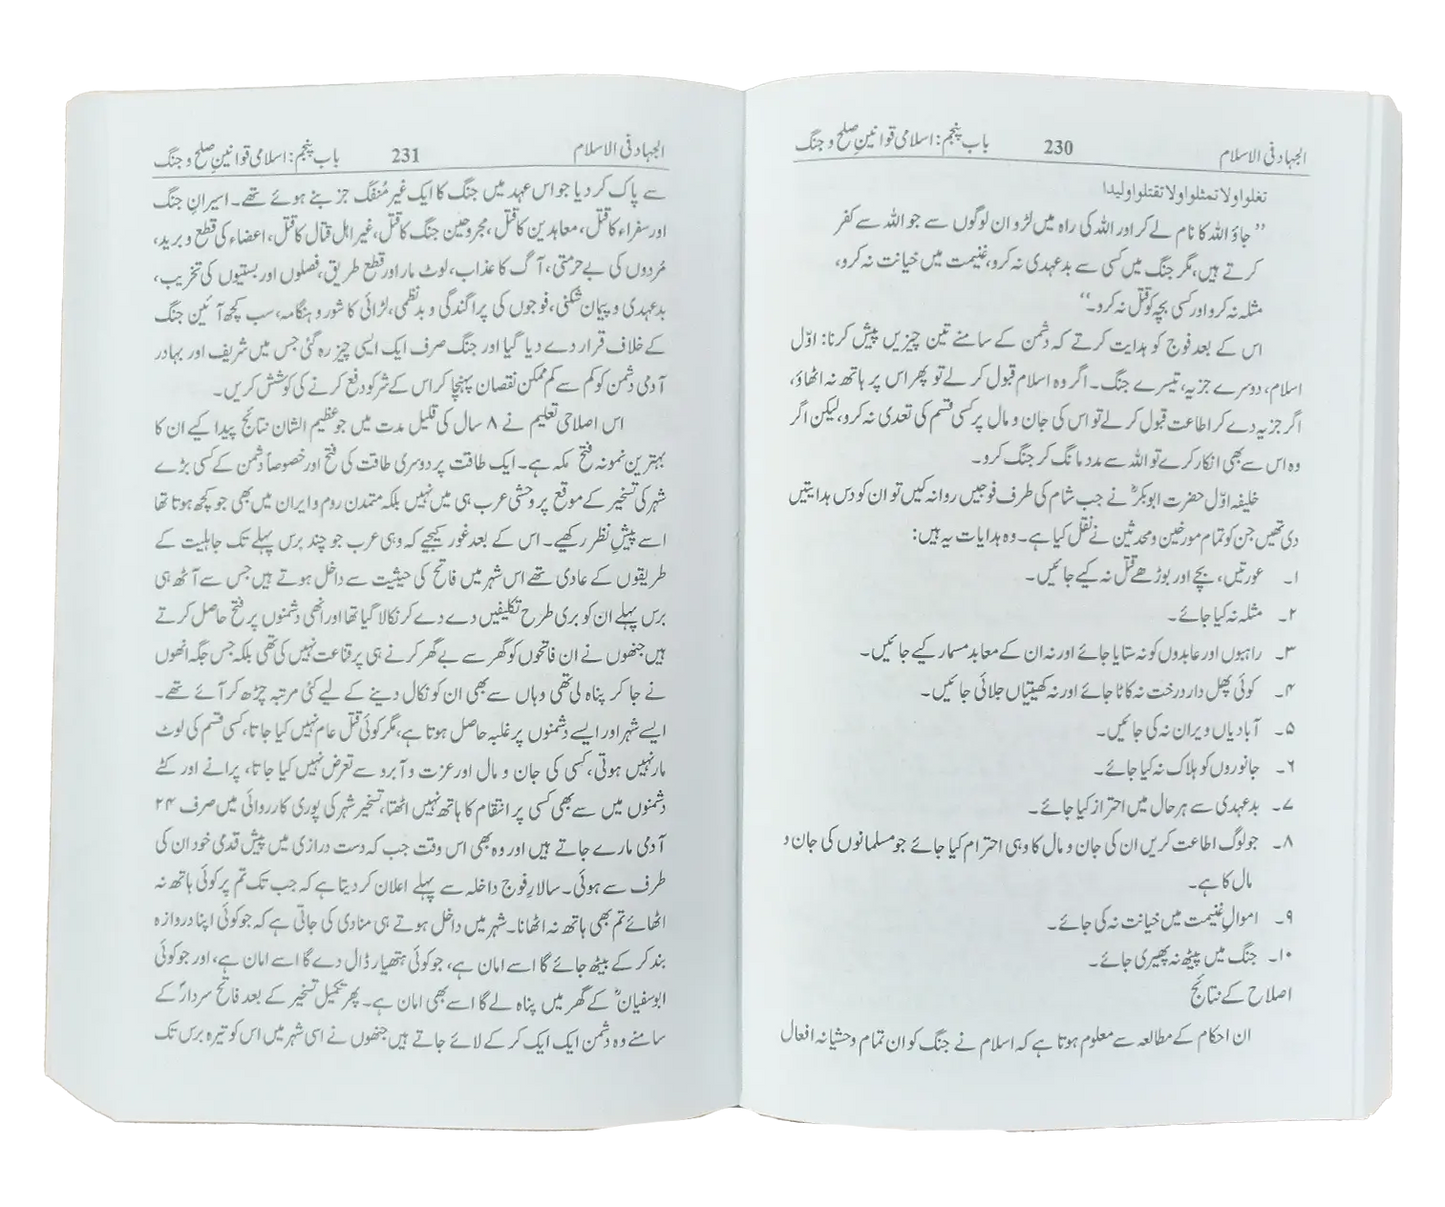 الجہاد فی الاسلام 230 باب پنجم: اسلامی قوانینِ صلح و جنگ
تغلوا ولا تمثلوا ولا تقتلوا وليدا
’’جاؤ اللہ کا نام لے کر اور اللہ کی راہ میں لڑو ان لوگوں سے جو اللہ سے کفر
کرتے ہیں، مگر جنگ میں کسی سے بدعہدی نہ کرو، غنیمت میں خیانت نہ کرو،
مثلہ نہ کرو اور کسی بچہ کو قتل نہ کرو۔‘‘
اس کے بعد فوج کو ہدایت کرتے کہ دشمن کے سامنے تین چیزیں پیش کرنا: اوّل
اسلام، دوسرے جزیہ، تیسرے جنگ۔ اگر وہ اسلام قبول کر لے تو پھر اس پر ہاتھ نہ اٹھاؤ،
اگر جزیہ دے کر اطاعت قبول کر لے تو اس کی جان و مال پر کسی قسم کی تعدی نہ کرو، لیکن اگر
وہ اس سے بھی انکار کرے تو اللہ سے مدد مانگ کر جنگ کرو۔
خلیفہ اوّل حضرت ابوبکرؓ نے جب شام کی طرف فوجیں روانہ کیں تو ان کو دس ہدایتیں
دی تھیں جن کو تمام مورخین و محدثین نے نقل کیا ہے۔ وہ ہدایات یہ ہیں:
۱۔ عورتیں، بچے اور بوڑھے قتل نہ کیے جائیں۔
۲۔ مثلہ نہ کیا جائے۔
۳۔ راہبوں اور عابدوں کو نہ ستایا جائے اور نہ ان کے معابد مسمار کیے جائیں۔
۴۔ کوئی پھل دار درخت نہ کاٹا جائے اور نہ کھیتیاں جلائی جائیں۔
۵۔ آبادیاں ویران نہ کی جائیں۔
۶۔ جانوروں کو ہلاک نہ کیا جائے۔
۷۔ بدعہدی سے ہر حال میں احتراز کیا جائے۔
۸۔ جو لوگ اطاعت کریں ان کی جان و مال کا وہی احترام کیا جائے جو مسلمانوں کی جان و
مال کا ہے۔
۹۔ اموالِ غنیمت میں خیانت نہ کی جائے۔
۱۰۔ جنگ میں پیٹھ نہ پھیری جائے۔
اصلاح کے نتائج
ان احکام کے مطالعہ سے معلوم ہوتا ہے کہ اسلام نے جنگ کو ان تمام وحشیانہ افعال
الجہاد فی الاسلام 231 باب پنجم: اسلامی قوانینِ صلح و جنگ
سے پاک کر دیا جو اس عہد میں جنگ کا ایک غیر مُنفک جز بنے ہوئے تھے۔ اسیرانِ جنگ
اور سفراء کا قتل، معاہدین کا قتل، مجروحینِ جنگ کا قتل، غیر اہل قتال کا قتل، اعضاء کی قطع و برید،
مُردوں کی بے حرمتی، آگ کا عذاب، لوٹ مار اور قطع طریق، فصلوں اور بستیوں کی تخریب،
بدعہدی و پیمان شکنی، فوجوں کی پراگندگی و بدنظمی، لڑائی کا شور و ہنگامہ، سب کچھ آئین جنگ
کے خلاف قرار دے دیا گیا اور جنگ صرف ایک ایسی چیز رہ گئی جس میں شریف اور بہادر
آدمی دشمن کو کم سے کم ممکن نقصان پہنچا کر اس کے شر کو دفع کرنے کی کوشش کریں۔
اس اصلاحی تعلیم نے ۸ سال کی قلیل مدت میں جو عظیم الشان نتائج پیدا کیے ان کا
بہترین نمونہ فتح مکہ ہے۔ ایک طاقت پر دوسری طاقت کی فتح اور خصوصاً دشمن کے کسی بڑے
شہر کی تسخیر کے موقع پر وحشی عرب ہی میں نہیں بلکہ متمدن روم و ایران میں بھی جو کچھ ہوتا تھا
اسے پیشِ نظر رکھیے۔ اس کے بعد غور کیجیے کہ وہی عرب جو چند برس پہلے تک جاہلیت کے
طریقوں کے عادی تھے اس شہر میں فاتح کی حیثیت سے داخل ہوتے ہیں جس سے آٹھ ہی
برس پہلے ان کو بری طرح تکلیفیں دے دے کر نکالا گیا تھا اور انھی دشمنوں پر فتح حاصل کرتے
ہیں جنھوں نے ان فاتحوں کو گھر سے بے گھر کرنے ہی پر قناعت نہیں کی تھی بلکہ جس جگہ انھوں
نے جا کر پناہ لی تھی وہاں سے بھی ان کو نکال دینے کے لیے کئی مرتبہ چڑھ کر آئے تھے۔
ایسے شہر اور ایسے دشمنوں پر غلبہ حاصل ہوتا ہے، مگر کوئی قتل عام نہیں کیا جاتا، کسی قسم کی لوٹ
مار نہیں ہوتی، کسی کی جان و مال اور عزت و آبرو سے تعرض نہیں کیا جاتا، پرانے اور کٹے
دشمنوں میں سے بھی کسی پر انتقام کا ہاتھ نہیں اٹھتا، تسخیر شہر کی پوری کارروائی میں صرف ۲۴
آدمی مارے جاتے ہیں اور وہ بھی اس وقت جب کہ دست درازی میں پیش قدمی خود ان کی
طرف سے ہوئی۔ سالارِ فوج داخلہ سے پہلے اعلان کر دیتا ہے کہ جب تک تم پر کوئی ہاتھ نہ
اٹھائے تم بھی ہاتھ نہ اٹھانا۔ شہر میں داخل ہوتے ہی منادی کی جاتی ہے کہ جو کوئی اپنا دروازہ
بند کر کے بیٹھ جائے گا اسے امان ہے، جو کوئی ہتھیار ڈال دے گا اسے امان ہے، اور جو کوئی
ابو سفیانؓ کے گھر میں پناہ لے گا اسے بھی امان ہے۔ پھر تکمیل تسخیر کے بعد فاتح سردارؐ کے
سامنے وہ دشمن ایک ایک کر کے لائے جاتے ہیں جنھوں نے اسی شہر میں اس کو تیرہ برس تک